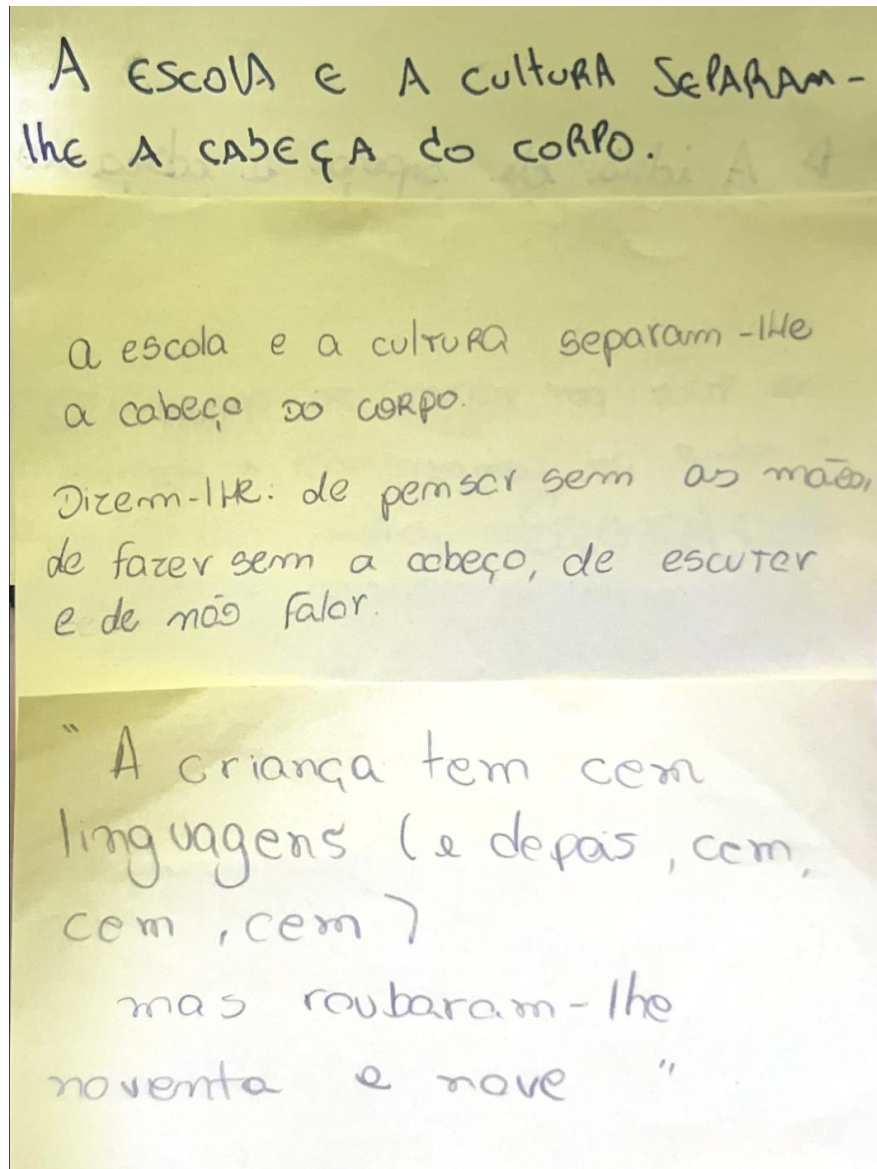 A ESCOLA E A CULTURA SEPARAM-
lhE A CAbEçA do CORPO.
a escola e a cultura separam-lhe
a cabeça do corpo.
Dizem-lhe: de pensar sem as mãos,
de fazer sem a cabeça, de escutar
e de não falar.
"A criança tem cem
linguagens (e depois, cem,
cem, cem)
mas roubaram-lhe
noventa e nove"